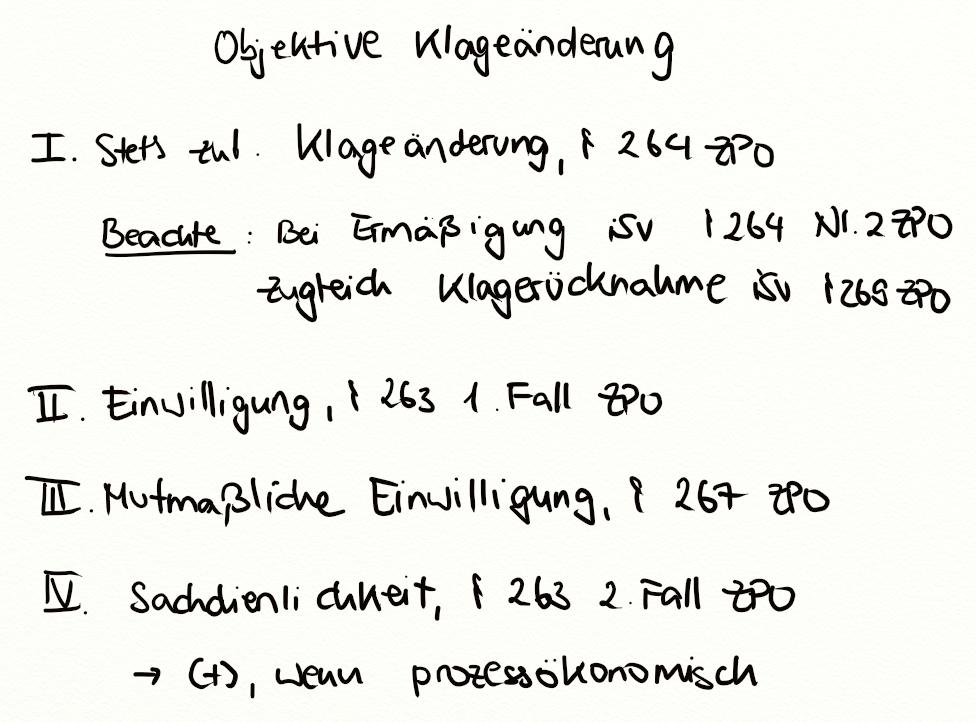 Objektive Klageänderung
I. Stets zul. Klageänderung, § 264 ZPO
Beachte: Bei Ermäßigung iSv § 264 Nr. 2 ZPO
zugleich Klagerücknahme iSv § 269 ZPO
II. Einwilligung, § 263 1. Fall ZPO
III. Mutmaßliche Einwilligung, § 267 ZPO
IV. Sachdienlichkeit, § 263 2. Fall ZPO
→ (+), wenn prozessökonomisch